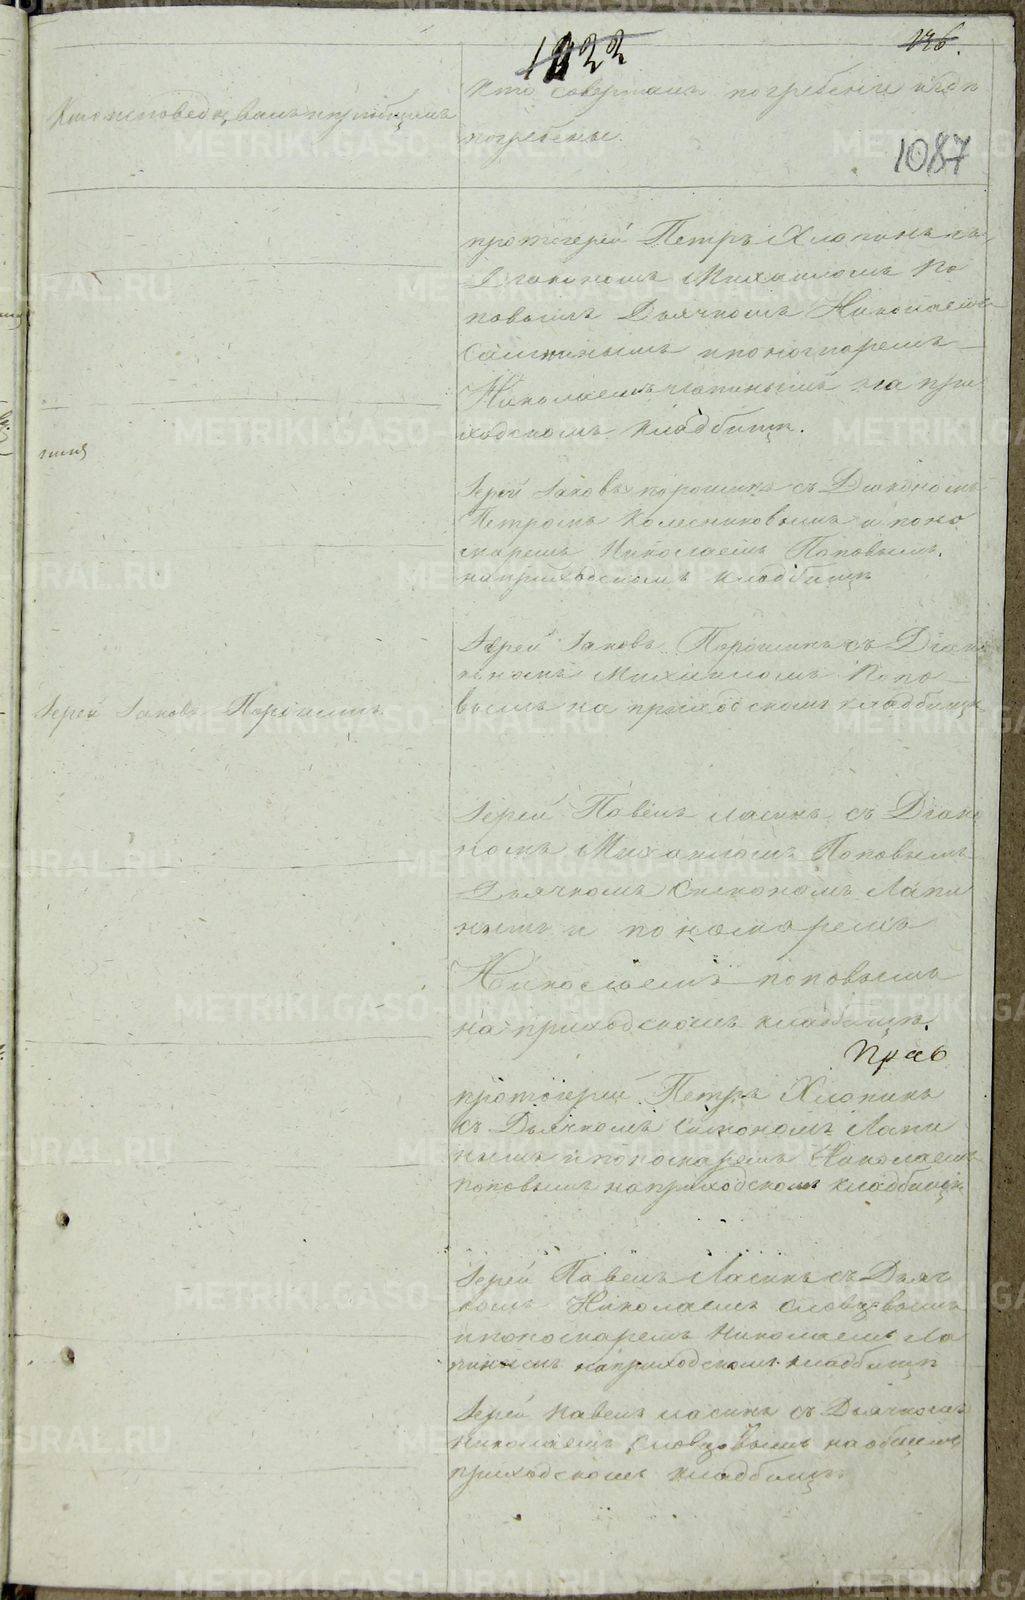 1822
126.
1087
Кто исповедывалъ и пріобщалъ
Кто совершалъ погребеніе и где
погребены.
протоіерей Петръ Хлопинъ съ
Діакономъ Михаиломъ По
повымъ Дьячкомъ Николаемъ
и пономаремъ
Николаемъ на при
ходскомъ кладбищѣ.
Іерей Іаковъ Порошинъ съ Діакономъ
Петромъ Колесниковымъ и поно
маремъ Николаемъ Поповымъ.
на приходскомъ кладбищѣ
Іерей Іаковъ Порошинъ съ Діако
номъ Михаиломъ Попо
вымъ на приходскомъ кладбищѣ
Іерей Іаковъ Порошинъ
Іерей Павелъ съ Діако
номъ Михаиломъ Поповымъ
Дьячкомъ Симономъ Лапи
нымъ и пономаремъ
Николаемъ поповымъ
на приходскомъ кладбищѣ.
протоіерей Петръ Хлопинъ
съ Дьячкомъ Симономъ Лапи
нымъ и пономаремъ Николаемъ
поповымъ на приходскомъ кладбищѣ
Іерей Павелъ съ Дьяч
комъ Николаемъ Словцовымъ
и пономаремъ Николаемъ Ла
пинымъ на приходскомъ кладбищѣ
Іерей Павелъ съ Дьячкомъ
Николаемъ Словцовымъ на общемъ
приходскомъ кладбищѣ
METRIKI.GASO-URAL.RU